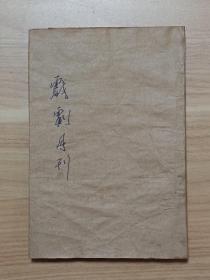 戲劇月刊